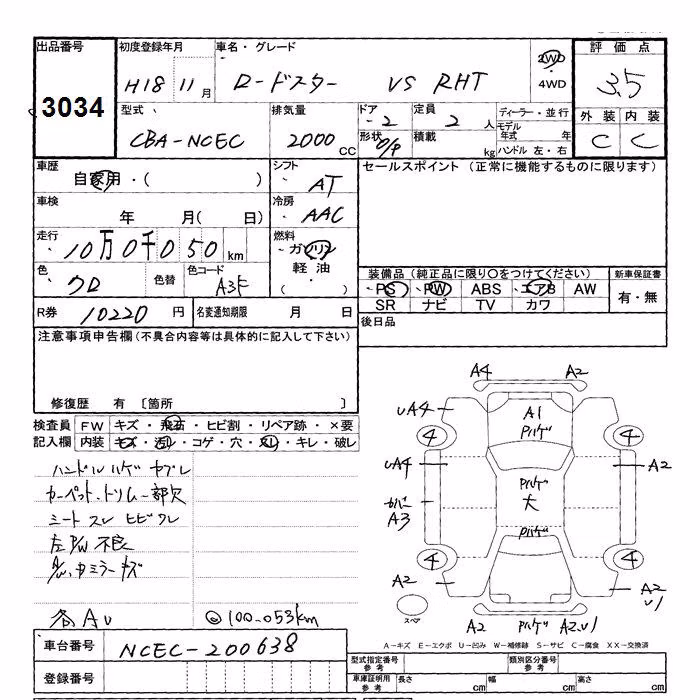 出品番号 初度登録年月 車名・グレード 2WD 評価点
3034 H18 11月 ロードスター VS RHT 4WD 3.5
型式 排気量 ドア 定員 ディーラー・並行 外装 内装
CBA-NCEC 2000CC 2 2人 モデル年式 年 C C
形状 O/P 積載 kg ハンドル 左・右
車歴 シフト セールスポイント (正常に機能するものに限ります)
自家用・( ) AT
車検 冷房
年 月( 日) AAC
走行 燃料
10万0千050km ガソリン
軽油
( )
色 色替 色コード 装備品(純正品に限り○をつけてください) 新車保証書
クロ A3F PS PW ABS エアB AW 有・無
SR ナビ TV カワ
R券 10220円 名変通知期限 月 日 後日品
注意事項申告欄(不具合内容等は具体的に記入して下さい)
修復歴 有 〔箇所 〕
検査員 FW キズ・飛石・ヒビ割・リペア跡・×要
記入欄 内装 キズ・汚レ・コゲ・穴・スレ・キレ・破レ
ハンドルハゲ ヤブレ
カーペット、トリム一部欠
シート スレ ヒビワレ
左P/W 不良
各AU ◎100-053km
A4 A2
UA4 A1
Pハゲ
4 4
UA4 Pハゲ A2
大
カバー A3
Pハゲ
4 4
A2 A2
U1
スペア A2 Pハゲ A2.U1
A-キズ E-エクボ U-凹み W-補修跡 S-サビ C-腐食 XX-交換済
車台番号 NCEC-200638
型式指定番号 参考 類別区分番号 参考
登録番号 車庫証明用 参考 長さ cm 幅 cm 高さ cm